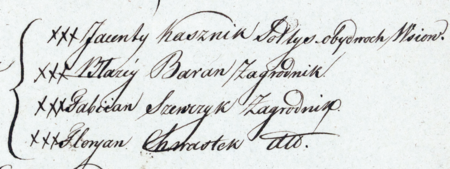 xxx Jacenty Kasznik Sołtys obydwoch Wsiow.
xxx Błażéy Baran Zagrodnik
xxx Fabiian Szewczyk Zagrodnik
xxx Floryan Chwastek dtto.